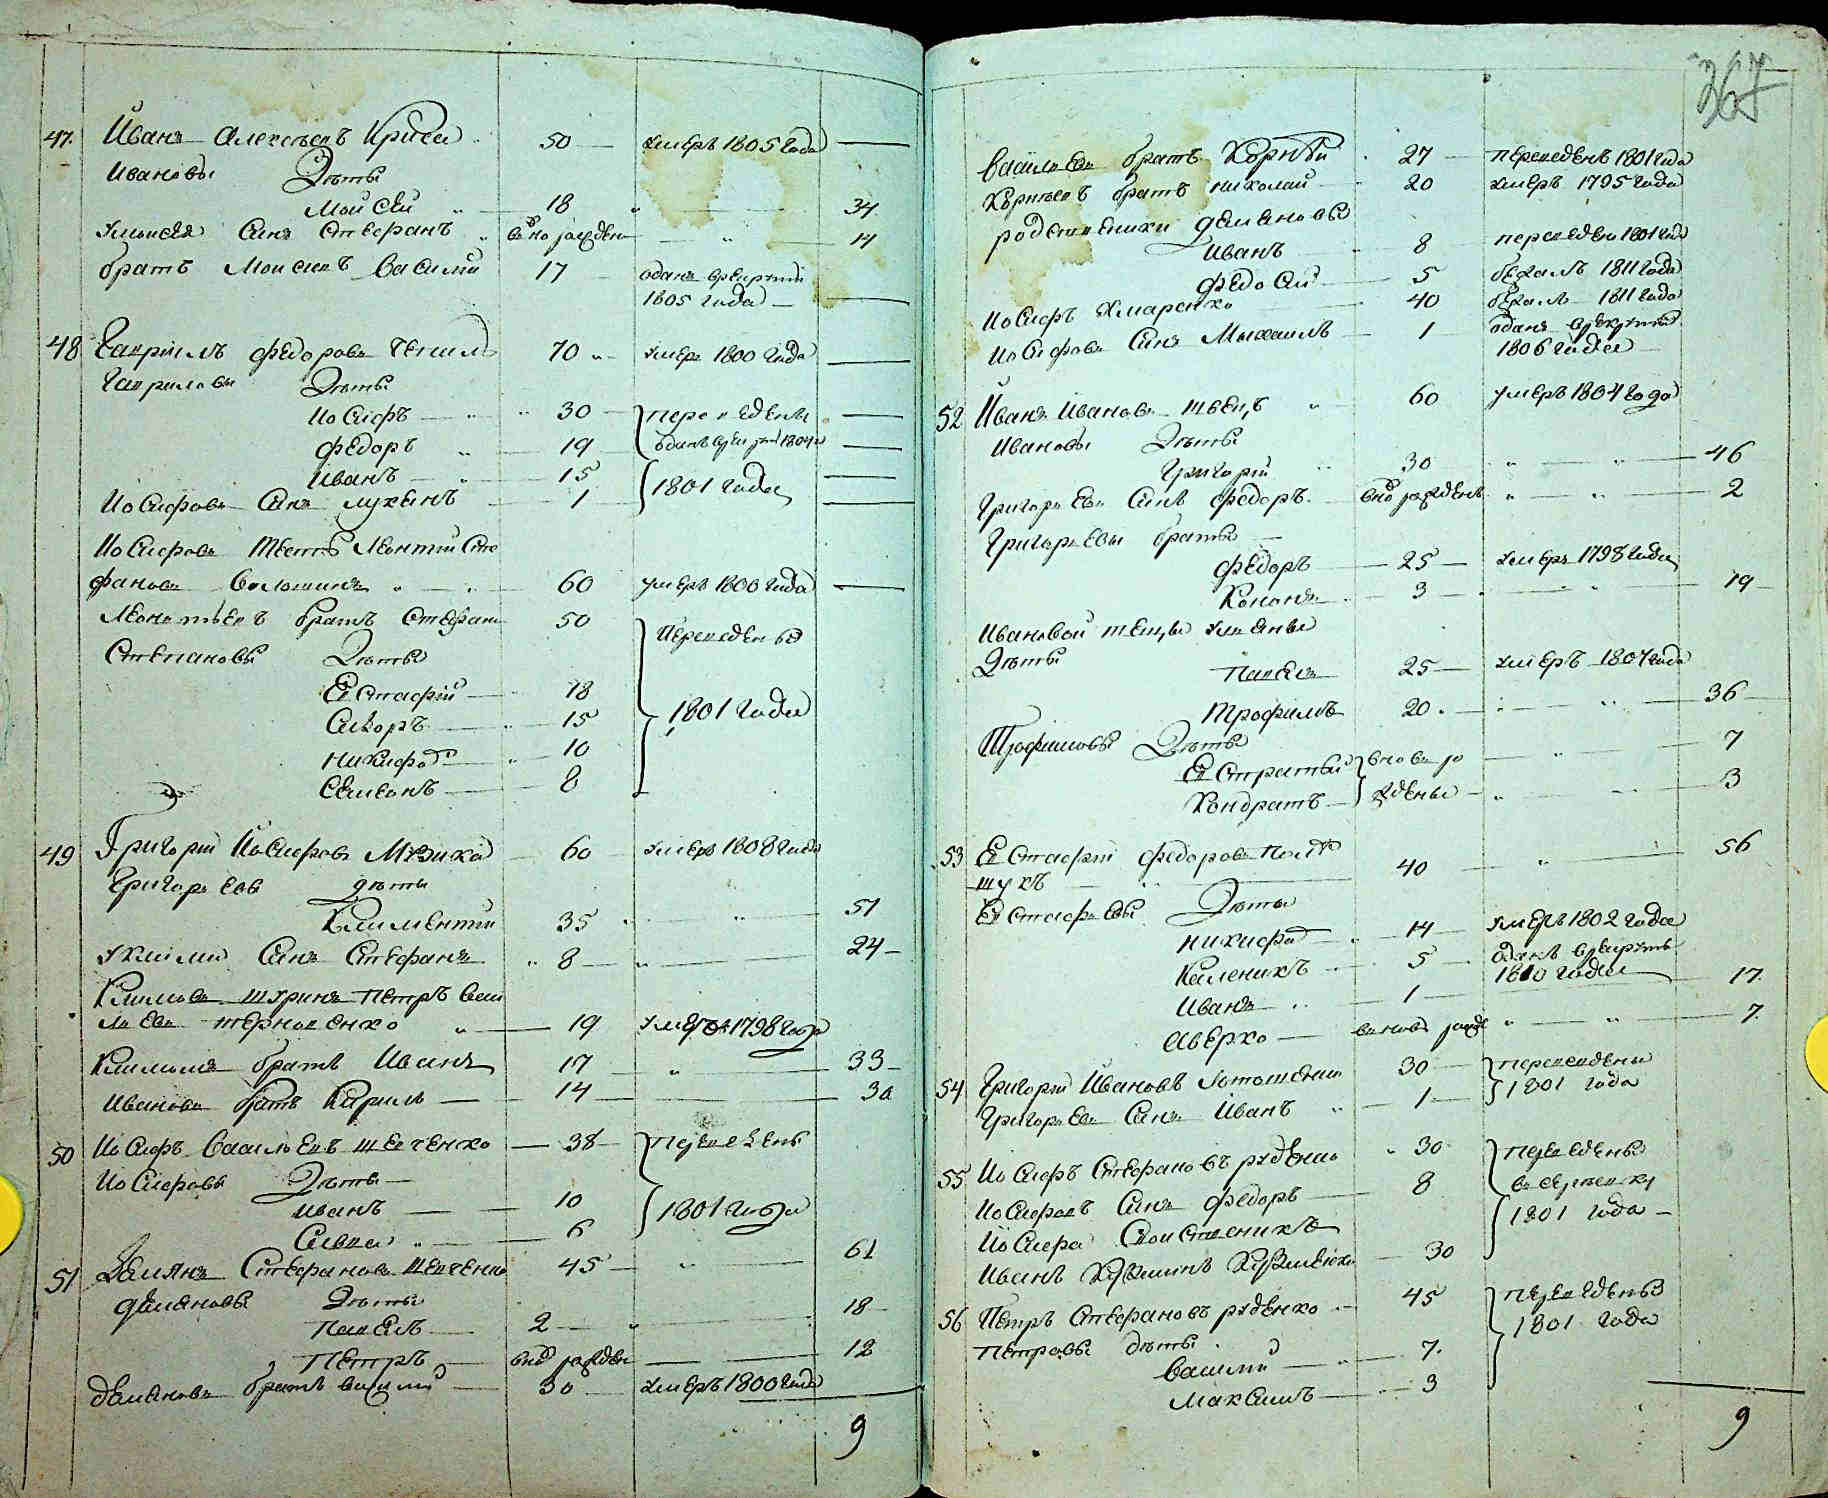 47. Иванъ Алексѣевъ Криса 50 умеръ 1805 года —
Ивановы Дѣти
Моисей 18 34
Умоисея Синъ Стефанъ вновь рожденъ 14
братъ Моисеевъ Василий 17 оданъ врекруты
1805 года —
48 Гаврыилъ Федоровъ 70 умеръ 1800 года —
Гавриловы Дѣти
Иосифъ 30 переведены —
Федоръ 19 оданъ врекруты 1804 —
Иванъ 15 —
Иосифовъ Синъ Лукянъ 1 1801 года —
Иосифовъ тесть Леонтий Сте
фановъ Волошинъ 60 умеръ 1800 года —
Леонтьевъ братъ Стефанъ 50 Переведены
Степановы Дѣти
Евстафий 18 1801 года
Сидоръ 15
Никифоръ 10
Семенъ 8
49 Григорий Иосифовъ Музика 60 умеръ 1808 года
Григорьевы дѣти
Климентий 35 51
Уклима Синъ Стефанъ 8 24
Климовъ шуринъ Петръ Васи
льевъ Терновенко 19 умеръ 1798 года
Климовъ братъ Иванъ 17 33
Ивановъ братъ Кирилъ 14 30
50 Иосифъ Васильевъ Шевченко 38 переведены
Иосифовы Дѣти
Иванъ 10 1801 года
Савва 6
51 Демянъ Стефановъ Шевченко 45 61
Демяновы Дѣти
Павелъ 2 18
Петръ вновь рожденъ 12
Демяновъ братъ Василий 30 умеръ 1800 года
9
367
Васильевъ братъ Корнѣй 27 переведенъ 1801 года
Корнѣевъ братъ Николай 20 умеръ 1795 года
родственики Демяновы
Иванъ 8 переведенъ 1801 года
Федосий 5 бежалъ 1811 года
Иосифъ Хмаренко 40 бежалъ 1811 года
Иосифовъ Синъ Михаилъ 1 оданъ врекруты
1806 года
52 Иванъ Ивановъ Швецъ 60 умеръ 1804 года
Ивановы Дѣти
Григорий 30 46
Григорьевъ Синъ Федоръ вновь рожденъ 2
Григорьевы браты
Федоръ 25 умеръ 1798 года
Кононъ 3 19
Ивановой тещы Уляны
Дѣти
Павелъ 25 умеръ 1807 года
Трофимъ 20 36
Трофимовы Дѣти
Евстратий вновь ро 7
Кондратъ ждены 3
53 Евстафий Федоровъ Пол
щукъ 40 56
Евстафьевы Дѣти
Никифоръ 14 умеръ 1802 года
Каленикъ 5 оданъ врекруты
1810 года
Иванъ 1 17
Аверко вновь рожд 7
54 Григорий Ивановъ 30 переведены
Григорьевъ Синъ Иванъ 1 1801 года
55 Иосифъ Стефановъ Руденко 30 переведены
Иосифовъ Синъ Федоръ 8
Иосифа Свойственикъ 1801 года
Иванъ Кузминъ Кузменко 30
56 Петръ Стефановъ Руденко 45 переведены
Петровы дѣти 1801 года
Василий 7
Максимъ 3
9